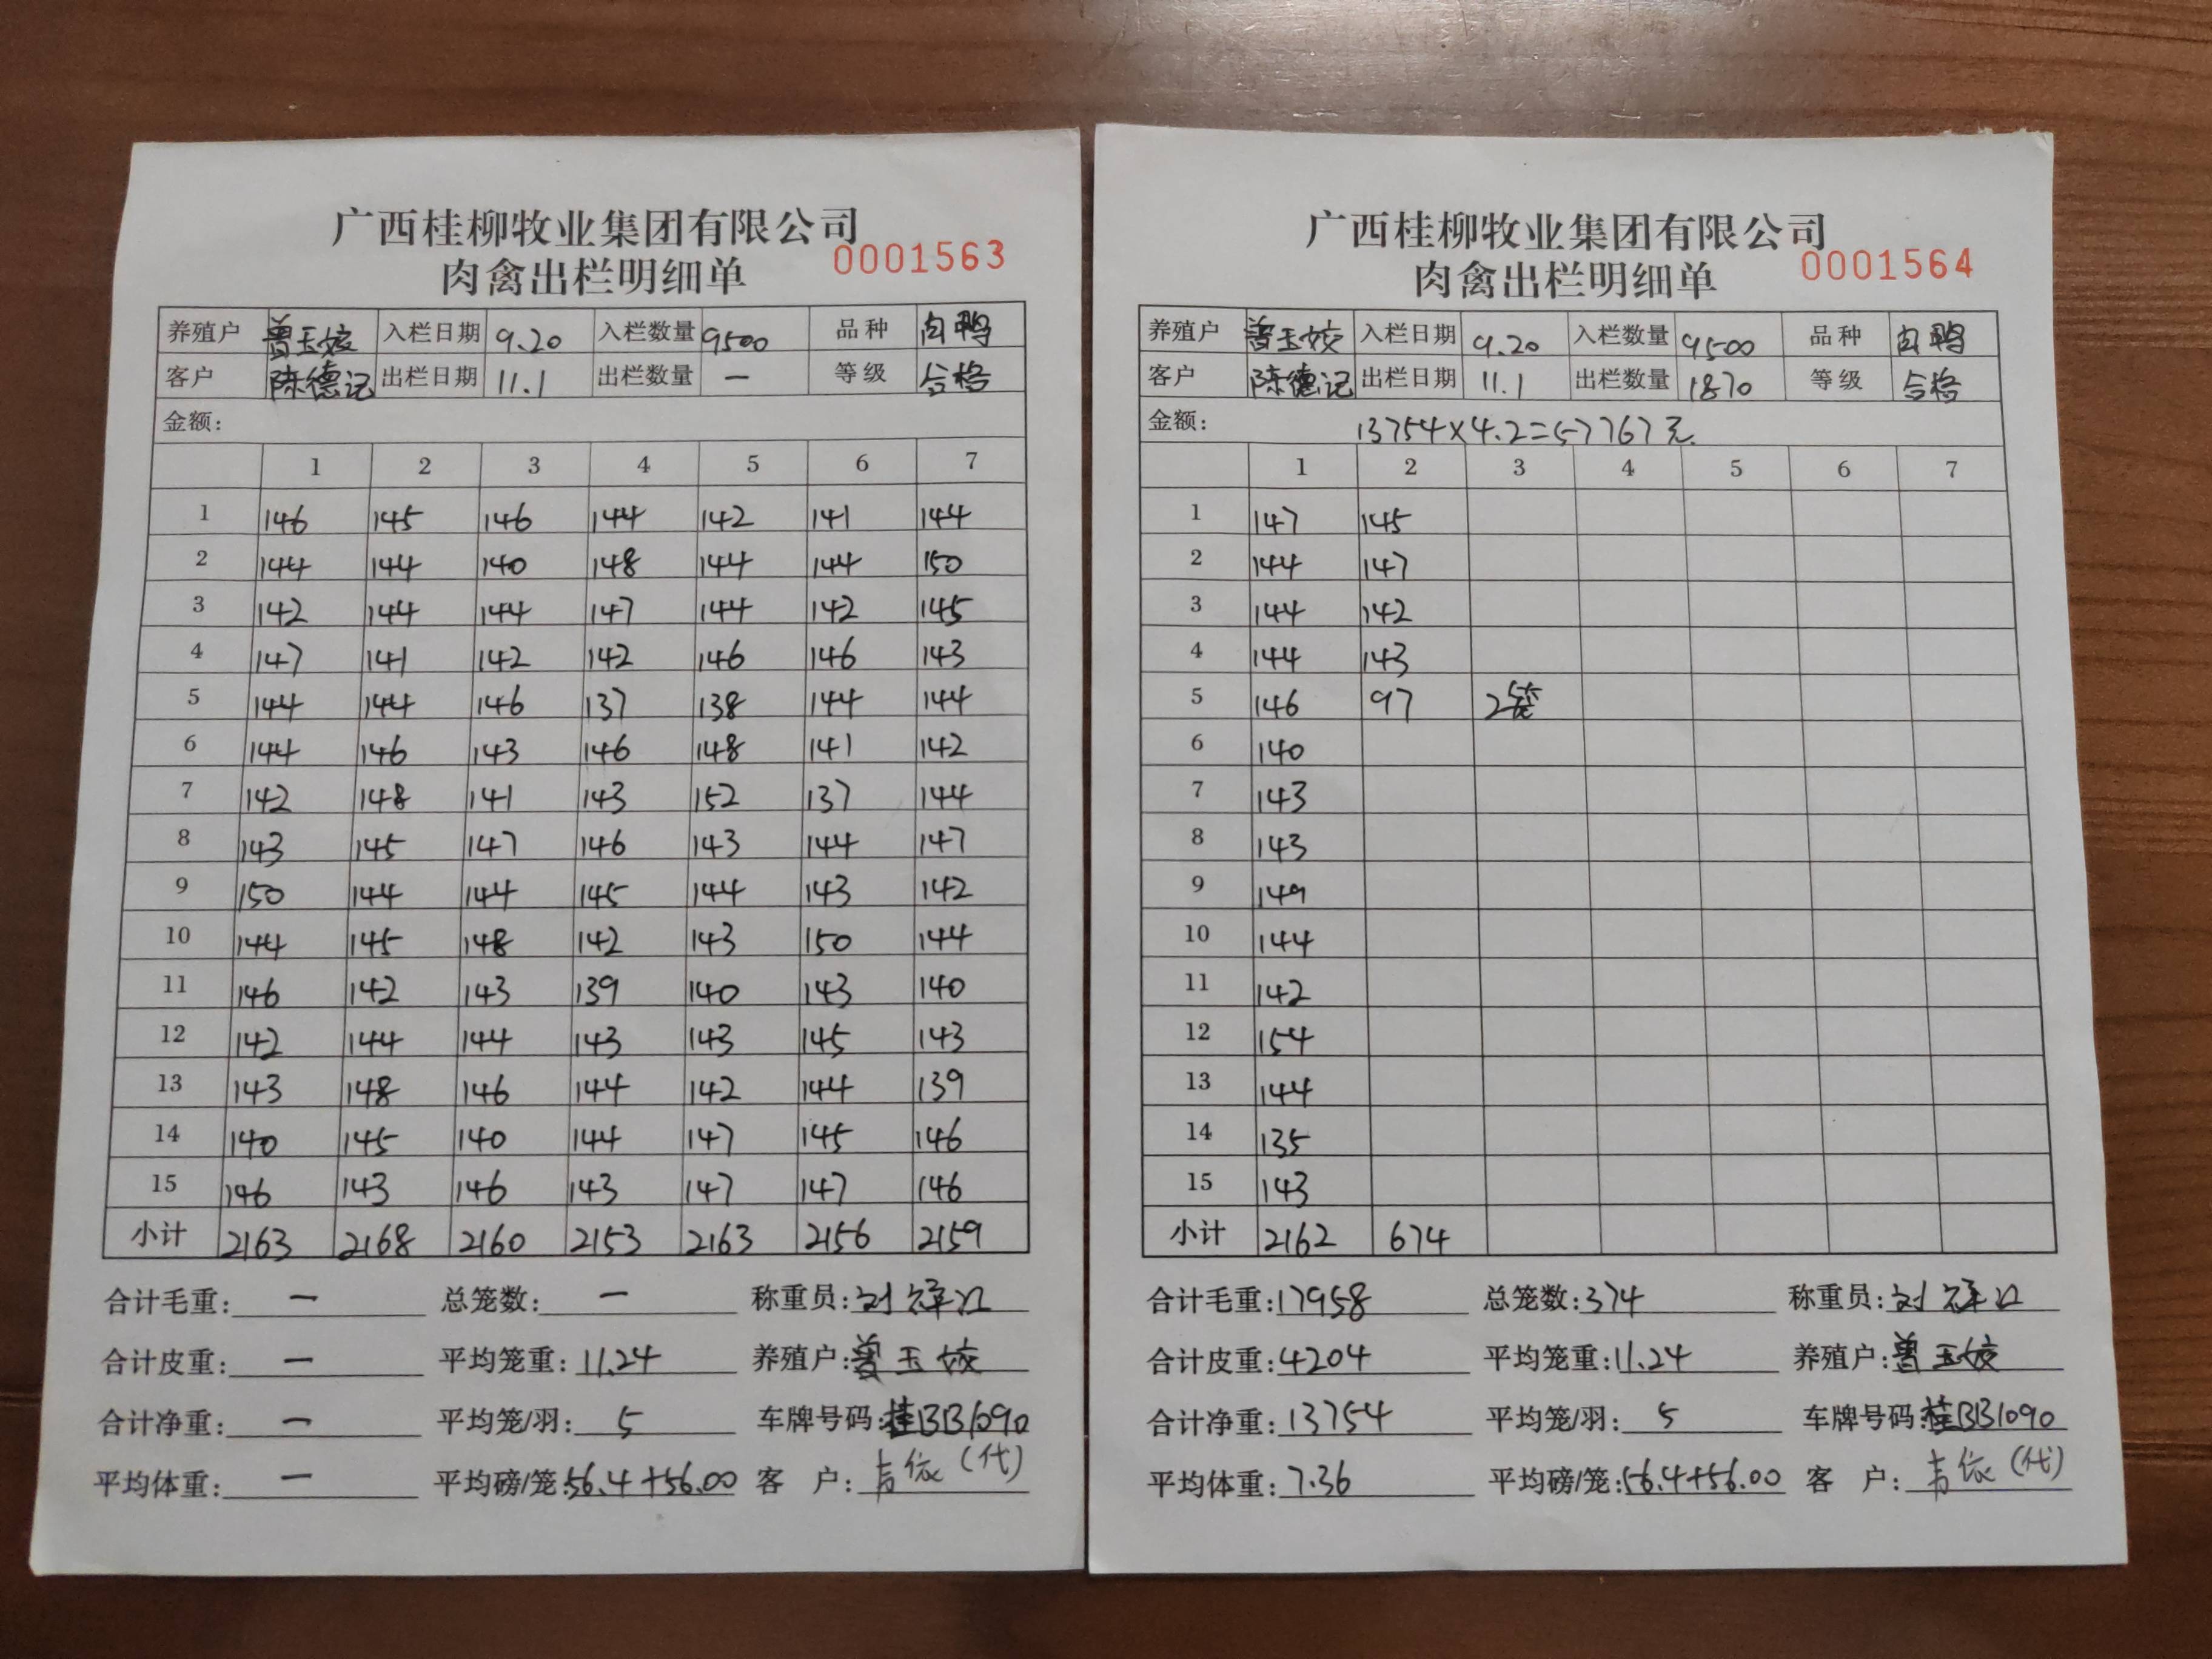 广西桂柳牧业集团有限公司
肉禽出栏明细单 0001563
养殖户 曾玉姣 入栏日期 9.20 入栏数量 9500 品种 肉鸭
客户 陈德记 出栏日期 11.1 出栏数量 — 等级 合格
金额:
1 2 3 4 5 6 7
1 146 145 146 144 142 141 144
2 144 144 140 148 144 144 150
3 142 144 144 147 144 142 145
4 147 141 142 142 146 146 143
5 144 144 146 137 138 144 144
6 144 146 143 146 148 141 142
7 142 148 141 143 152 137 144
8 143 145 147 146 143 144 147
9 150 144 144 145 144 143 142
10 144 145 148 142 143 150 144
11 146 142 143 139 140 143 140
12 142 144 144 143 143 145 143
13 143 148 146 144 142 144 139
14 140 145 140 144 147 145 146
15 146 143 146 143 147 147 146
小计 2163 2168 2160 2153 2163 2156 2159
合计毛重: — 总笼数: — 称重员: 刘
合计皮重: — 平均笼重: 11.24 养殖户: 曾玉姣
合计净重: — 平均笼/羽: 5 车牌号码: 桂BB1090
平均体重: — 平均磅/笼: 56.4+56.00 客户: (代)
广西桂柳牧业集团有限公司
肉禽出栏明细单 0001564
养殖户 曾玉姣 入栏日期 9.20 入栏数量 9500 品种 肉鸭
客户 陈德记 出栏日期 11.1 出栏数量 1870 等级 合格
金额: 13754×4.2=57767元.
1 2 3 4 5 6 7
1 147 145
2 144 147
3 144 142
4 144 143
5 146 97 2笼
6 140
7 143
8 143
9 149
10 144
11 142
12 154
13 144
14 135
15 143
小计 2162 674
合计毛重: 17958 总笼数: 374 称重员: 刘
合计皮重: 4204 平均笼重: 11.24 养殖户: 曾玉姣
合计净重: 13754 平均笼/羽: 5 车牌号码: 桂BB1090
平均体重: 7.36 平均磅/笼: 56.4+56.00 客户: (代)